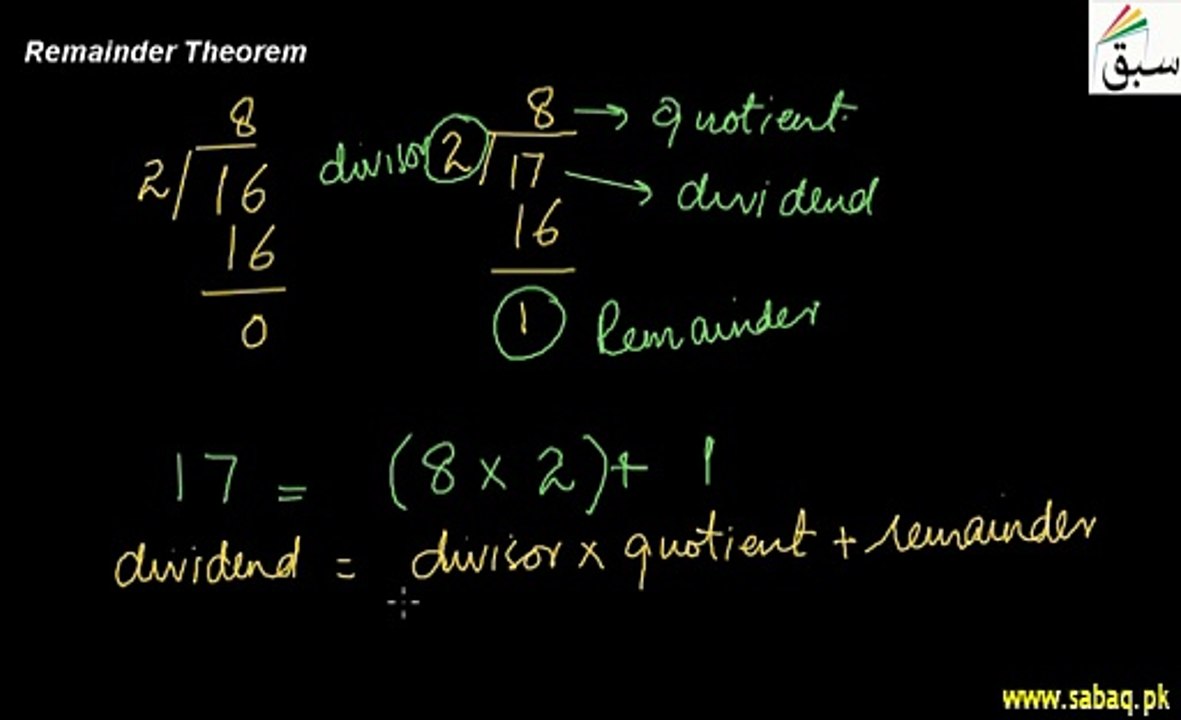 Remainder Theorem
سبق
8
2 16
16
0
divisor 2 17
8 → quotient
→ dividend
16
1 Remainder
17 = (8 × 2) + 1
dividend = divisor × quotient + remainder
www.sabaq.pk